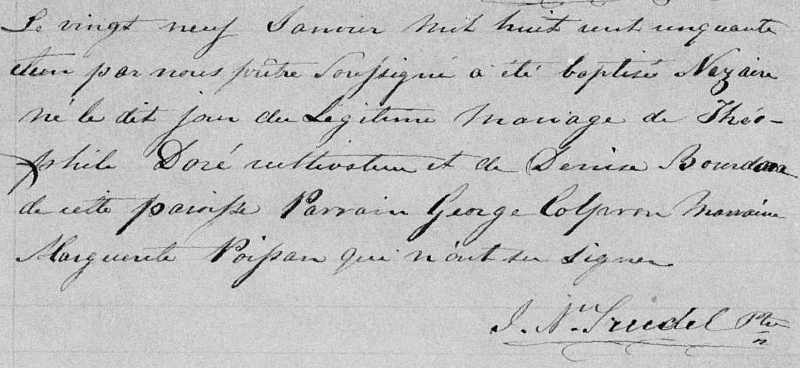 Le vingt neuf Janvier mil huit cent cinquante
et un par nous prêtre soussigné a été baptisé Nazaire
né le dit jour du Légitime mariage de Théo-
phile Doré cultivateur et de Denise
de cette paroisse Parrain George Colpron Marraine
Marguerite Poissan qui n'ont su signer
J. N. Trudel Ptre